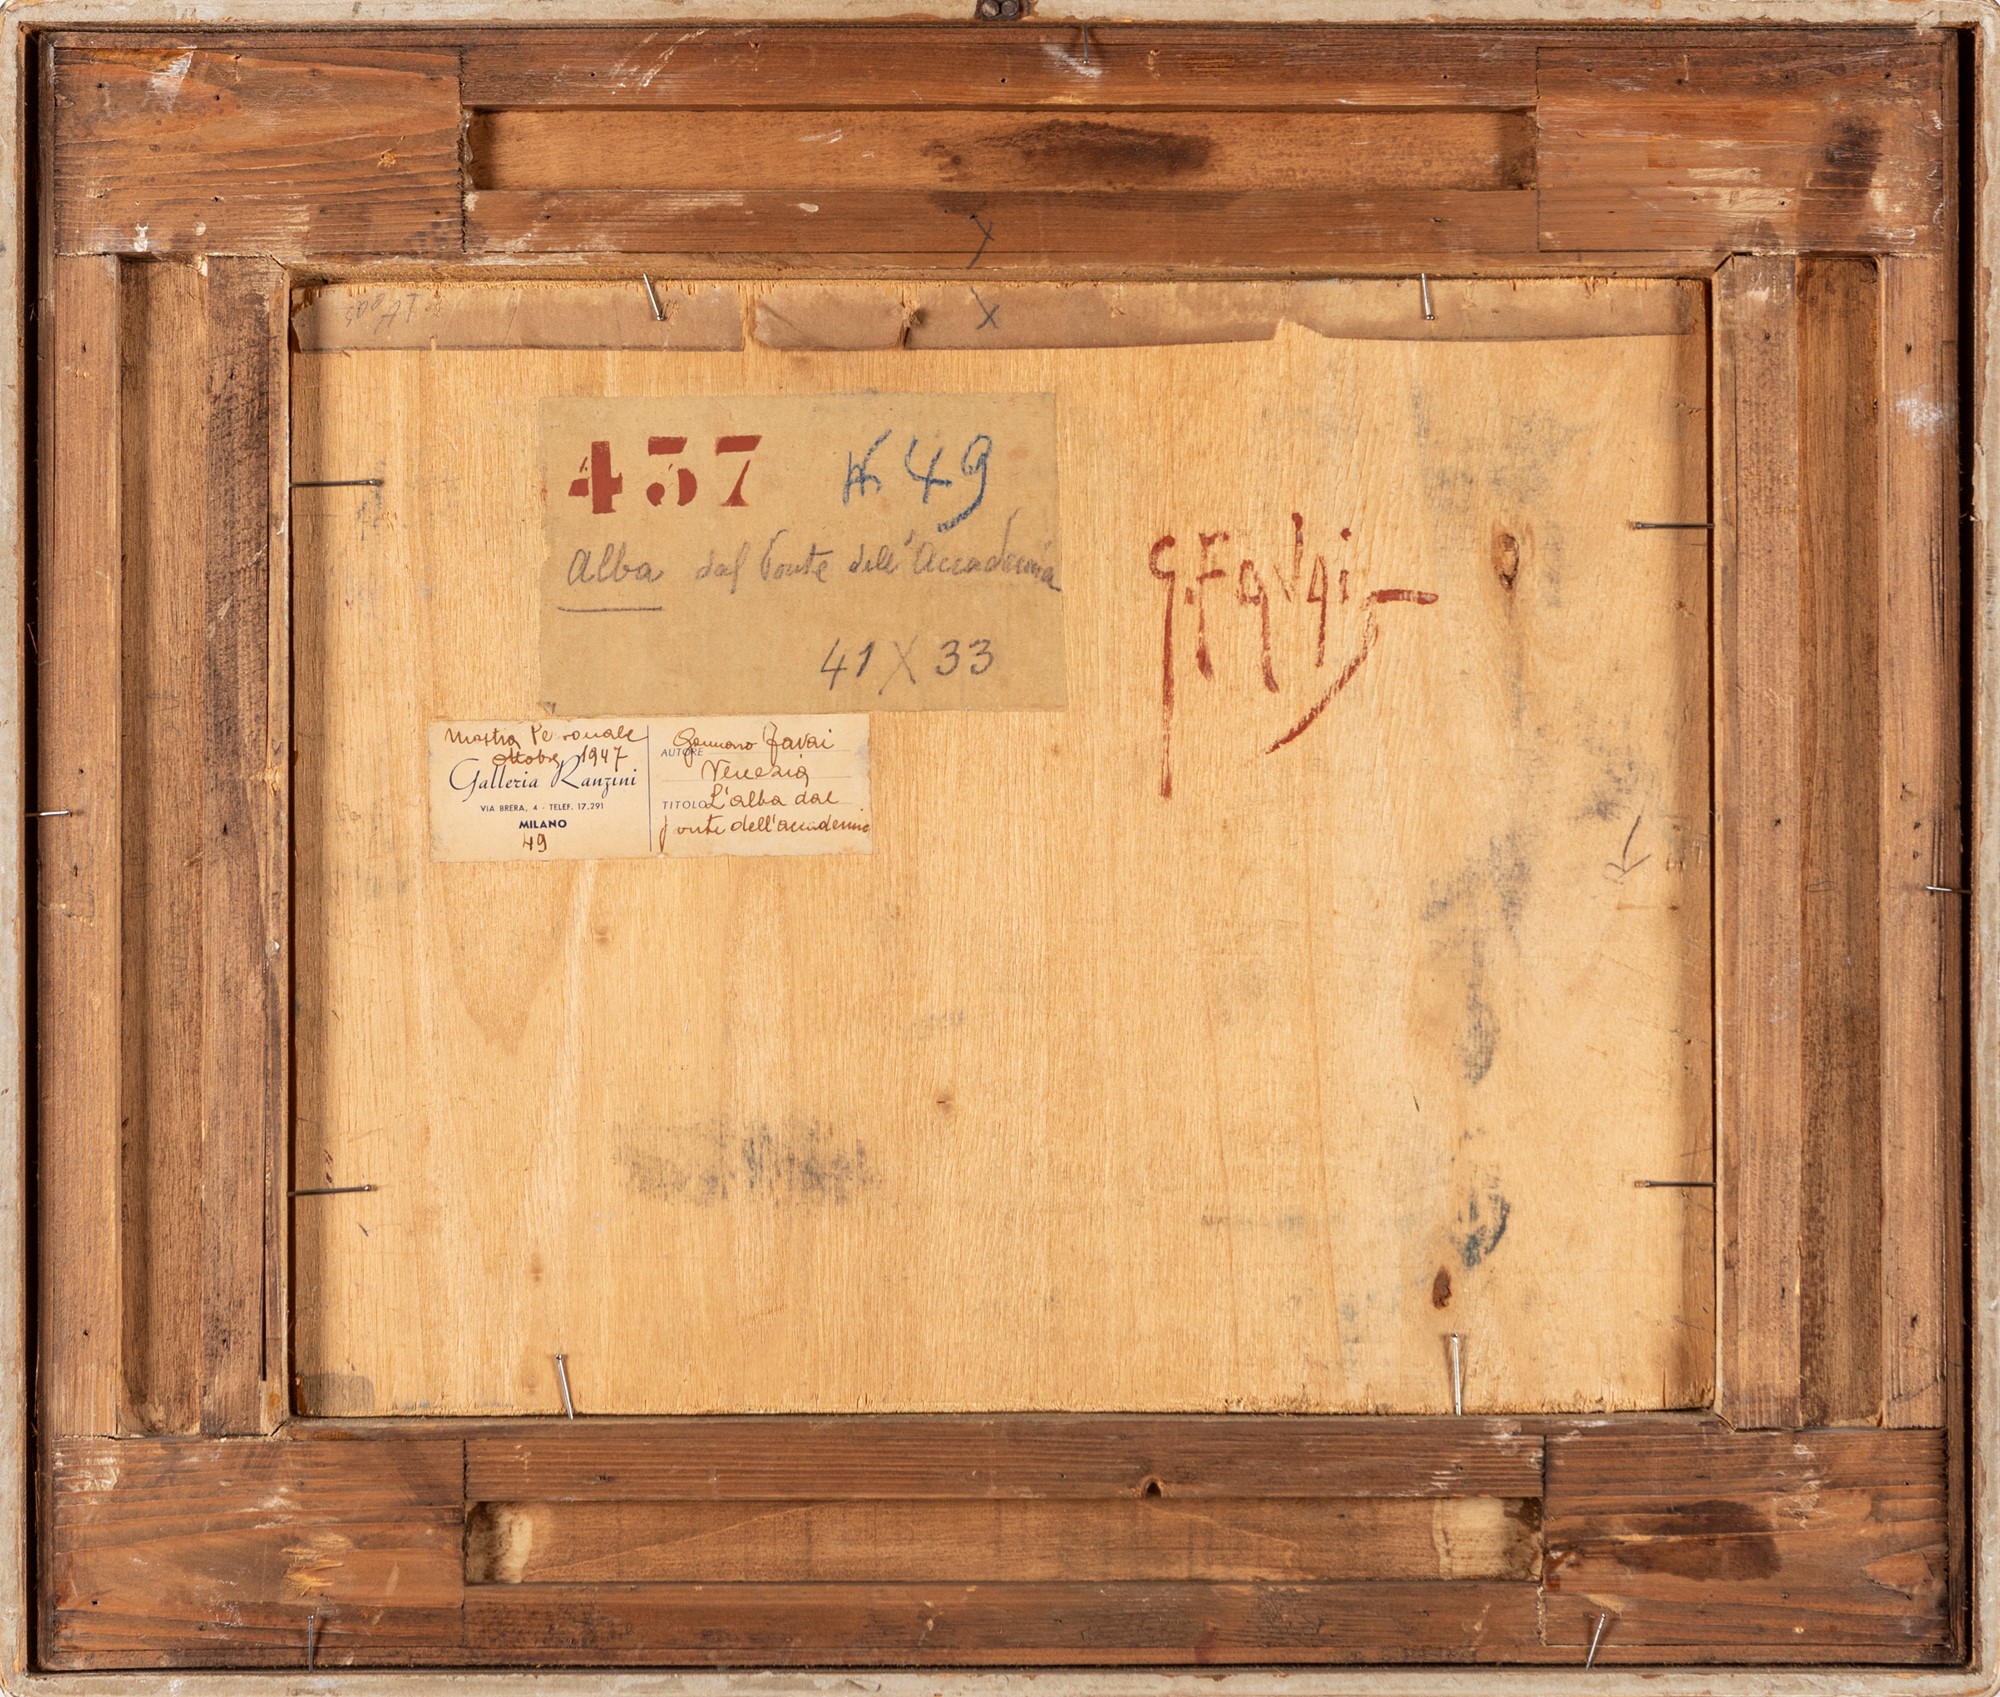 437 N 49
Alba dal Ponte dell'Accademia
41 X 33
G. FAVAi
Mostra Personale
ottobre 1947
Galleria Ranzini
VIA BRERA, 4 - TELEF. 17.291
MILANO
49
AUTORE Gennaro Favai
Venezia
TITOLO L'alba dal
ponte dell'accademia
X
X